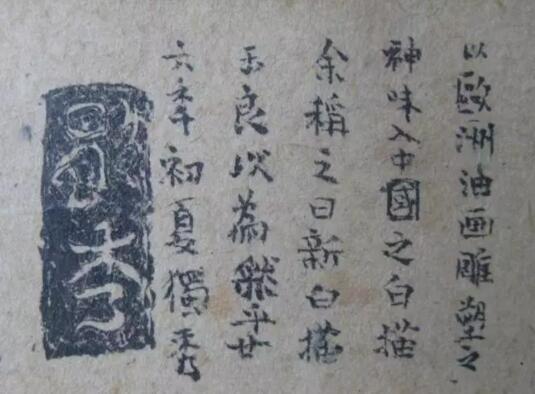 以歐洲油画雕塑之
神味入中國之白描
余稱之曰新白描
玉良以為然乎廿
六年初夏獨秀
獨秀